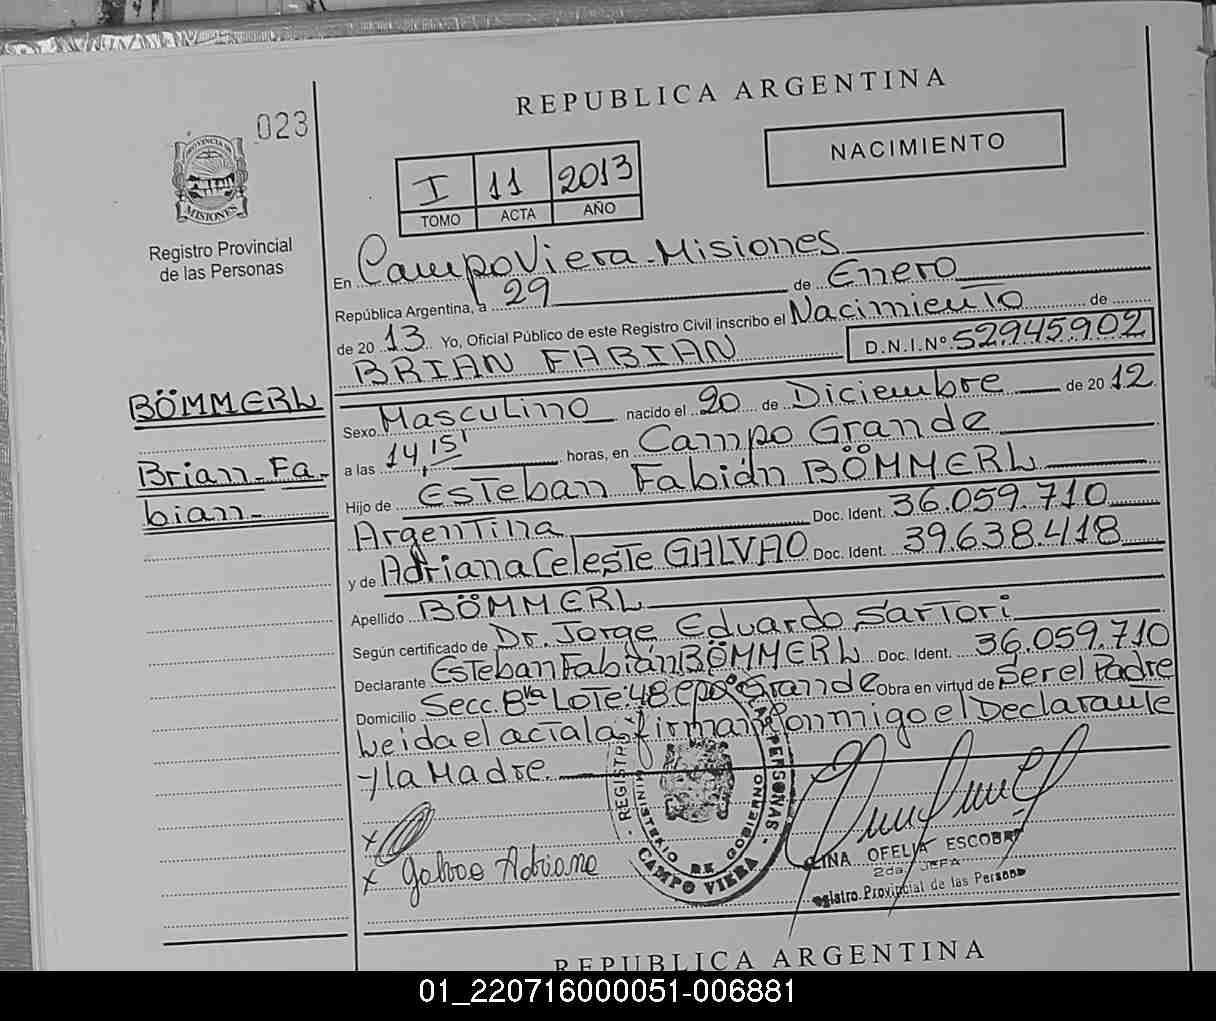 REPUBLICA ARGENTINA
023
NACIMIENTO
I 11 2013
TOMO ACTA AÑO
PROVINCIA DE
MISIONES
Registro Provincial
de las Personas
En Campo Viera - Misiones
República Argentina, a 29 de Enero
de 20 13 Yo, Oficial Público de este Registro Civil inscribo el Nacimiento de
BRIAN FABIAN D.N.I.Nº 52945902
BÖMMERL
Brian Fa-
bian-
Sexo Masculino nacido el 20 de Diciembre de 20 12
a las 14,15' horas, en Campo Grande
Hijo de Esteban Fabián BÖMMERL
Argentina Doc. Ident. 36.059.710
y de Adriana Celeste GALVAO Doc. Ident. 39.638.418
Apellido BÖMMERL
Según certificado de Dr. Jorge Eduardo Sartori
Declarante Esteban Fabián BÖMMERL Doc. Ident. 36.059.710
Domicilio Secc. 8va Lote: 48 Cpo Grande Obra en virtud de Ser el Padre
Leida el acta las firman conmigo el Declarante
y la Madre
x
x Galvao Adriana
REGISTR LAS PERSONAS - MINISTERIO DE GOBIERNO
CAMPO VIERA
LINA OFELIA ESCOBAR
2da. JEFA
Registro Provincial de las Personas
REPUBLICA ARGENTINA
01_220716000051-006881